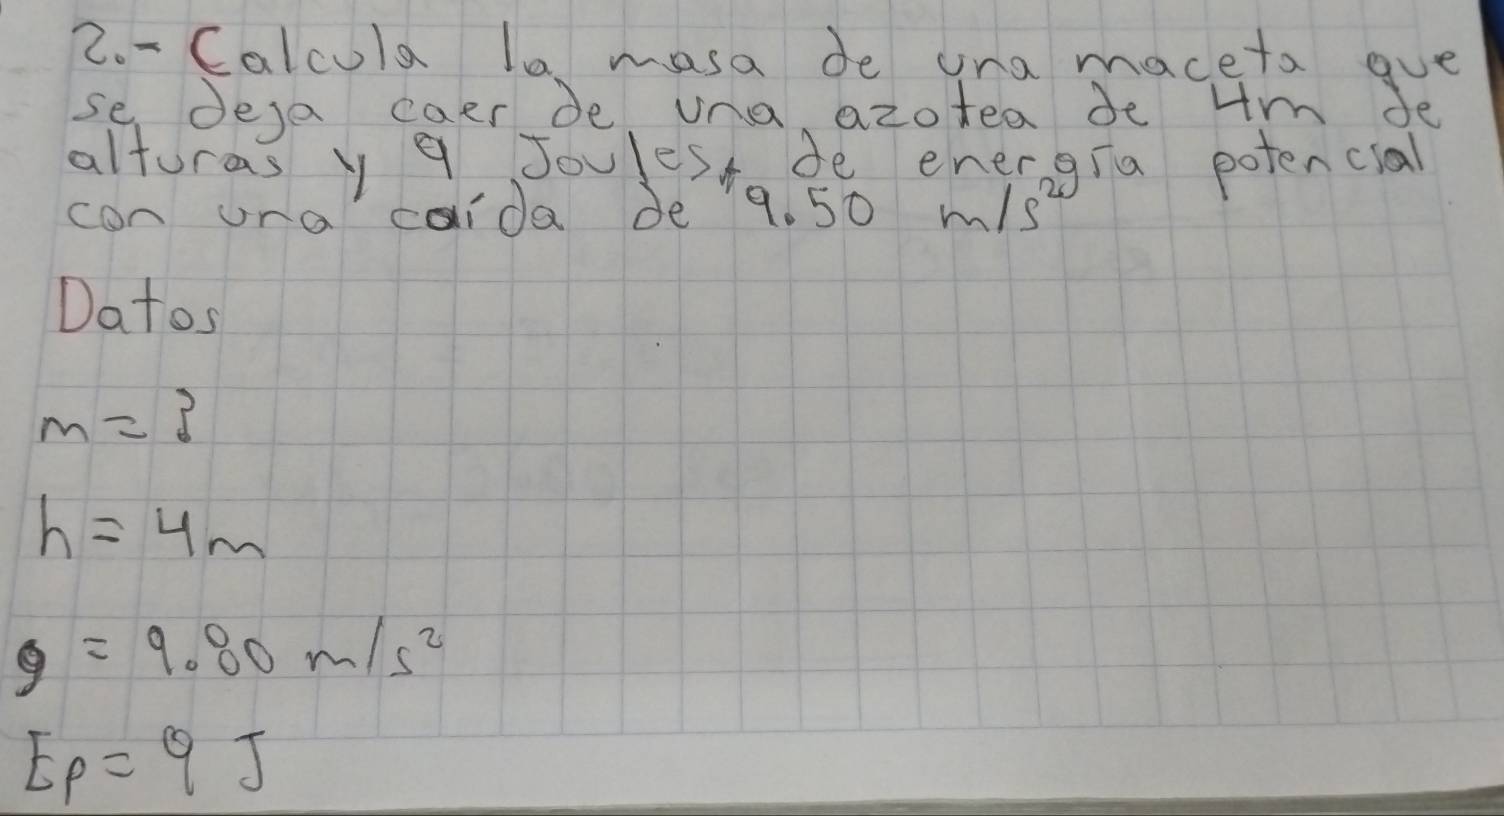 2.- Calcula la masa de una maceta que
se deja caer de una azotea de 4m de
alturas y 9 Joules de energía potencial
con una caída de 9.50 m/s²
Datos
m = ?
h = 4m
g = 9.80 m/s²
Ep = 9 J